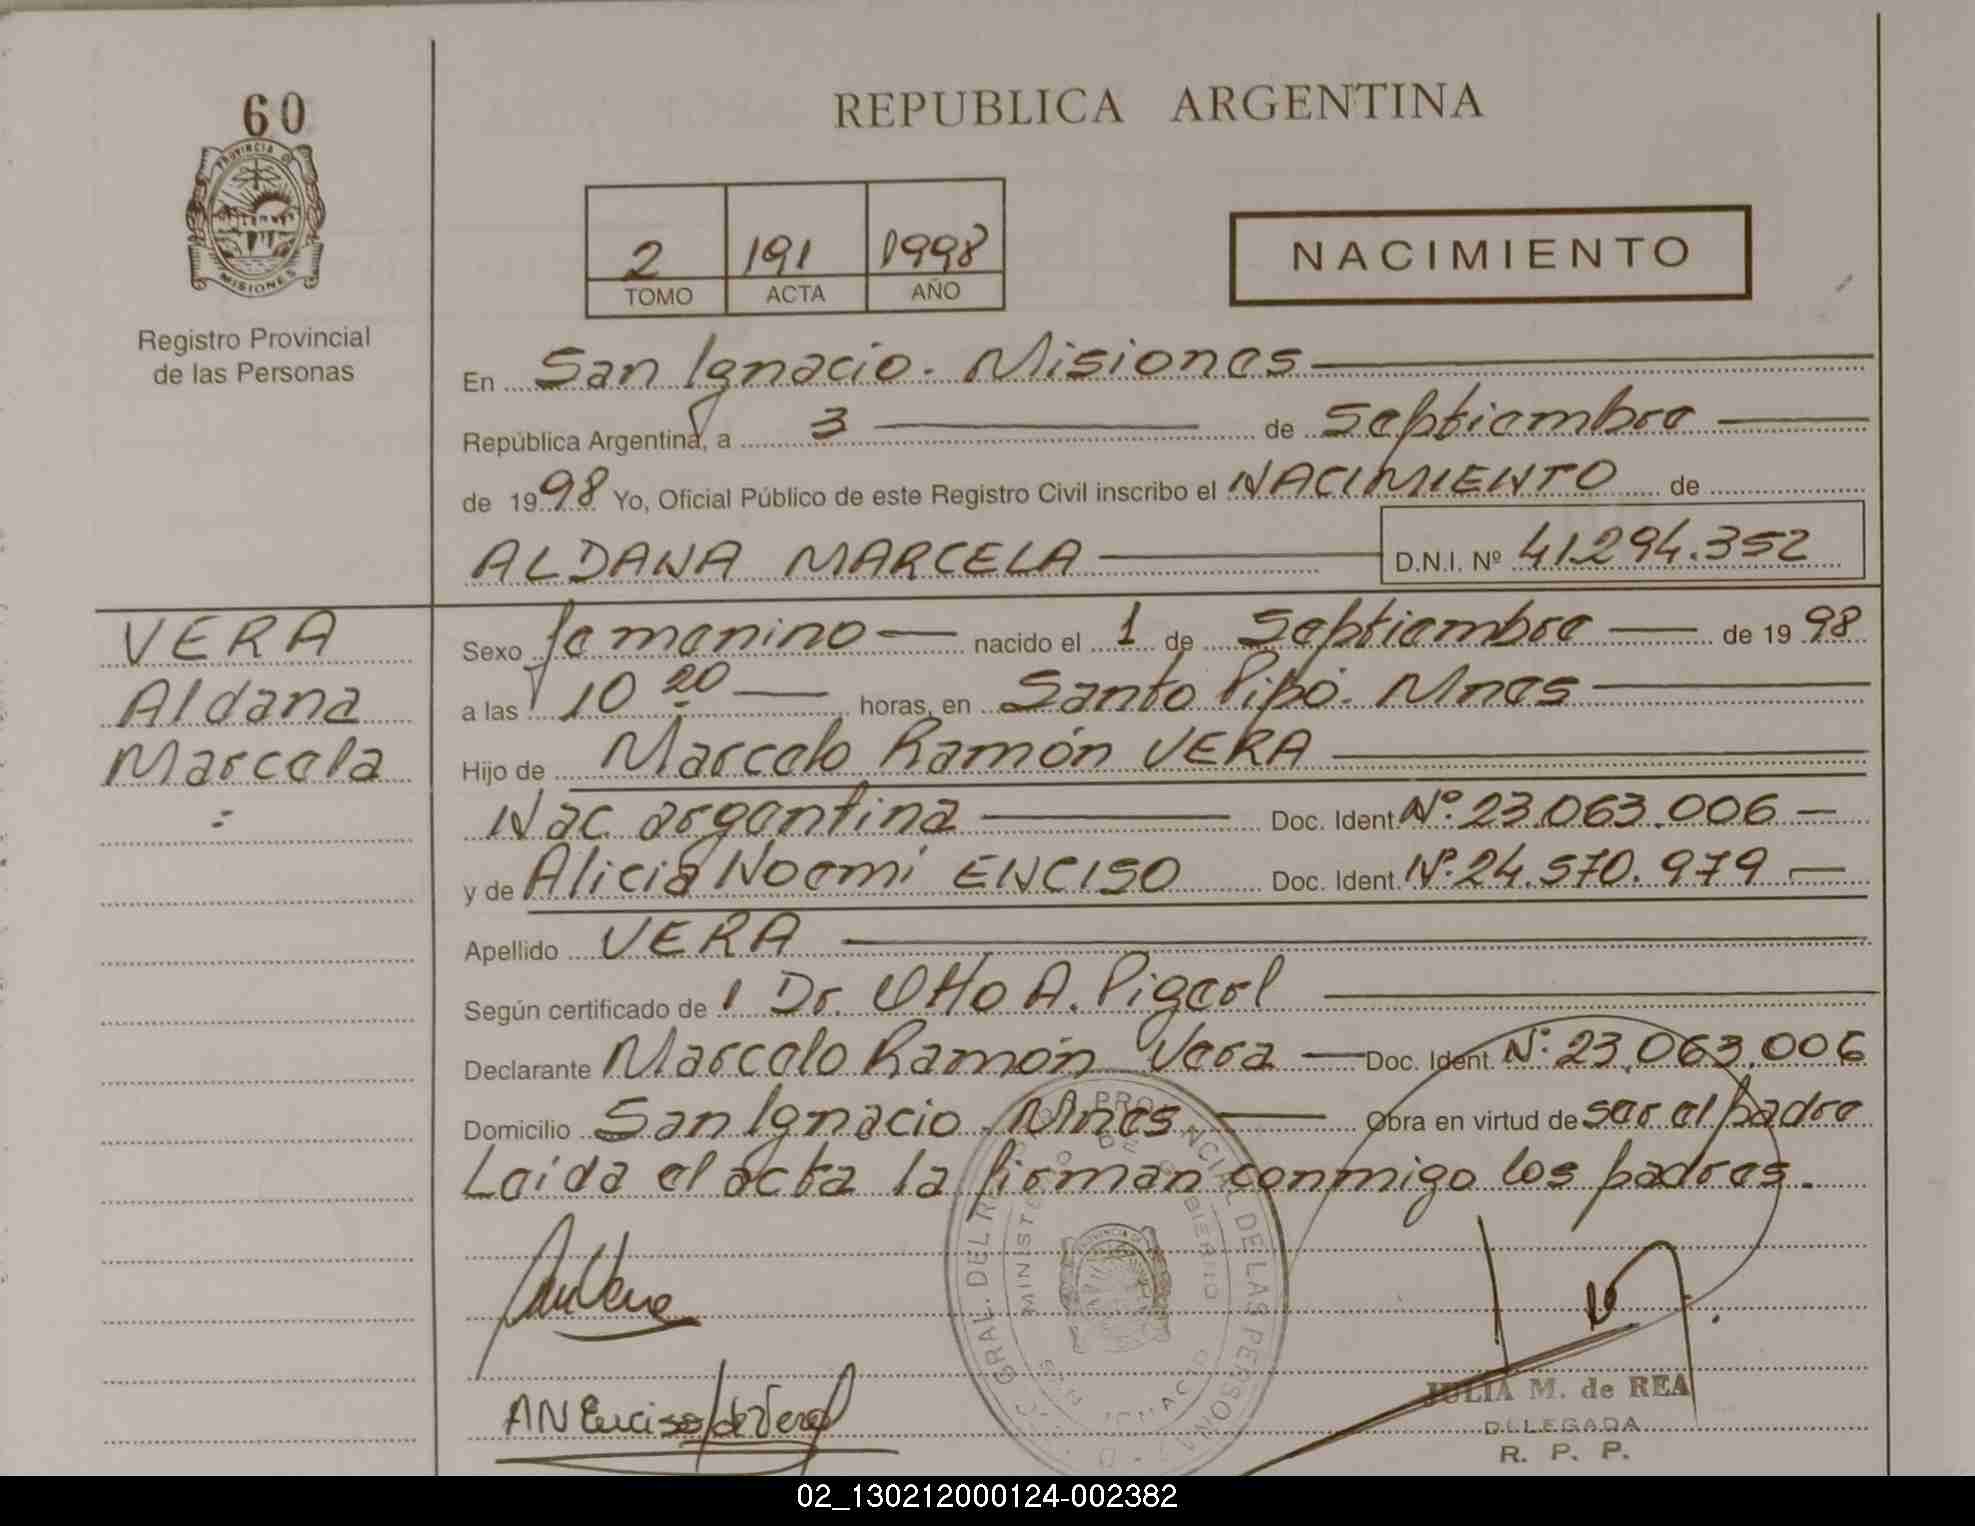 60
PROVINCIA DE
MISIONES
Registro Provincial
de las Personas
REPUBLICA ARGENTINA
2 191 1998
TOMO ACTA AÑO
NACIMIENTO
En San Ignacio. Misiones
República Argentina, a 3 de Septiembre
de 1998 Yo, Oficial Público de este Registro Civil inscribo el NACIMIENTO de
ALDANA MARCELA D.N.I. Nº 41.294.352
VERA
Aldana
Marcela
Sexo femenino nacido el 1 de Septiembre de 1998
a las 10 20 horas, en Santo Pipó. Mnes
Hijo de Marcelo Ramón VERA
Nac. argentina Doc. Ident. Nº 23.063.006
y de Alicia Noemí ENCISO Doc. Ident. Nº 24.570.979
Apellido VERA
Según certificado de Dr. Otto A. Pigerl
Declarante Marcelo Ramón Vera Doc. Ident. Nº 23.063.006
Domicilio San Ignacio. Mnes Obra en virtud de ser el padre
Leída el acta la firman conmigo los padres.
AN Enciso de Vera
GRAL. DEL PROVINCIAL DE LAS PERSONAS
MINISTERIO DE GOBIERNO
SAN IGNACIO
JULIA M. de REA
DELEGADA
R. P. P.
02_130212000124-002382